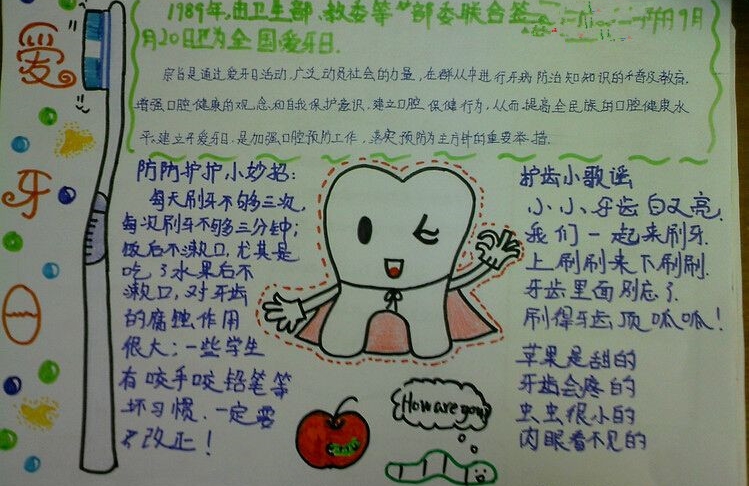 爱
牙
日
1989年,由卫生部、教委等 部委联合签
月20日为全国爱牙日.
宗旨是通过爱牙日活动.广泛动员社会的力量,在群众中进行牙病防治知知识的普及教育.
增强口腔健康的观念和自我保护意识.建立口腔保健行为,从而提高全民族的口腔健康水
平.建立牙爱牙日.是加强口腔预防工作,落实预防为主方针的重要举措.
防防护护小妙招:
每天刷牙不够三次,
每次刷牙不够三分钟;
饭后不漱口,尤其是
吃了水果后不
漱口,对牙齿
的腐蚀作用
很大;一些学生
有咬手咬铅笔等
坏习惯.一定要
改正!
护齿小歌谣
小小牙齿白又亮.
我们一起来刷牙.
上刷刷来下刷刷.
牙齿里面别忘了.
刷得牙齿顶呱呱!
苹果是甜的
牙齿会疼的
虫虫很小的
肉眼看不见的
How are you?